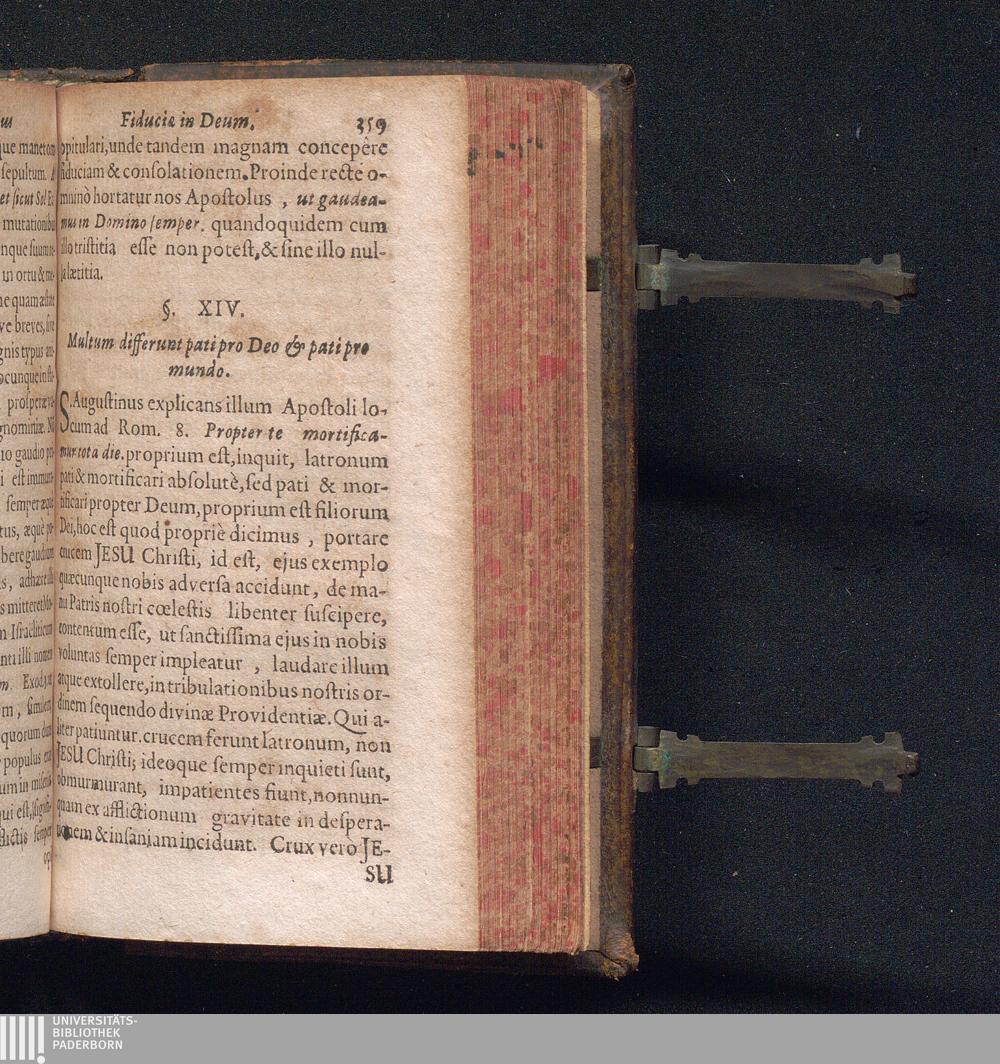 Fiduciæ in Deum. 359
opitulari, unde tandem magnam concepêre
fiduciam & consolationem. Proinde recte o-
mninò hortatur nos Apostolus, ut gaudea-
mus in Domino semper. quandoquidem cum
illo tristitia esse non potest, & sine illo nul-
la lætitia.
§. XIV.
Multum differunt pati pro Deo & pati pro
mundo.
S. Augustinus explicans illum Apostoli lo-
cum ad Rom. 8. Propter te mortifica-
mur tota die. proprium est, inquit, latronum
pati & mortificari absolutè, sed pati & mor-
tificari propter Deum, proprium est filiorum
Dei, hoc est quod propriè dicimus, portare
crucem JESU Christi, id est, ejus exemplo
quæcunque nobis adversa accidunt, de ma-
nu Patris nostri cœlestis libenter suscipere,
contentum esse, ut sanctissima ejus in nobis
voluntas semper impleatur, laudare illum
atque extollere, in tribulationibus nostris or-
dinem sequendo divinæ Providentiæ. Qui a-
liter patiuntur. crucem ferunt latronum, non
JESU Christi; ideoque semper inquieti sunt,
obmurmurant, impatientes fiunt, nonnun-
quam ex afflictionum gravitate in despera-
tionem & insaniam incidunt. Crux vero JE-
SU
UNIVERSITÄTS-
BIBLIOTHEK
PADERBORN